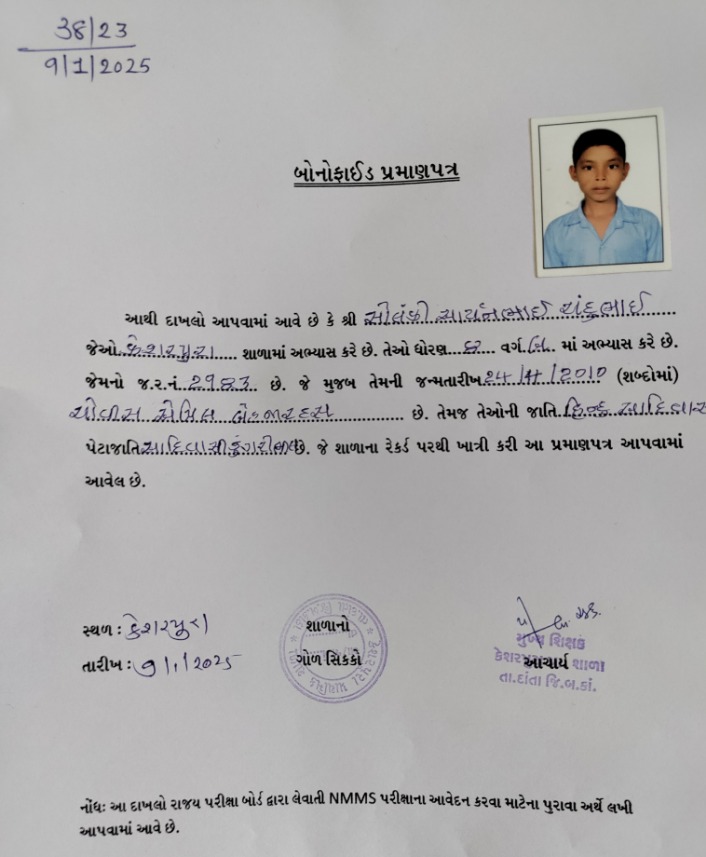 38/23
9/1/2025
બોનોફાઈડ પ્રમાણપત્ર
આથી દાખલો આપવામાં આવે છે કે શ્રી સોલંકી સાયનભાઈ ચંદુભાઈ
જેઓ કેશરપુરા શાળામાં અભ્યાસ કરે છે. તેઓ ધોરણ ૮ વર્ગ બ માં અભ્યાસ કરે છે.
જેમનો જ.ર.નં. 2983 છે. જે મુજબ તેમની જન્મતારીખ 24/4/2010 (શબ્દોમાં)
ચોવીસ એપ્રિલ બે હજાર દસ છે. તેમજ તેઓની જાતિ હિન્દુ આદિવાસ
પેટાજાતિ આદિવાસી ડુંગરી છે. જે શાળાના રેકર્ડ પરથી ખાત્રી કરી આ પ્રમાણપત્ર આપવામાં
આવેલ છે.
સ્થળ : કેશરપુરા
તારીખ : 9/1/2025
શાળાનો
ગોળ સિક્કો
મુખ્ય શિક્ષક
કેશરપુરા આચાર્ય શાળા
તા.દાંતા જિ.બ.કાં.
નોંધઃ આ દાખલો રાજય પરીક્ષા બોર્ડ દ્વારા લેવાતી NMMS પરીક્ષાના આવેદન કરવા માટેના પુરાવા અર્થે લખી
આપવામાં આવે છે.